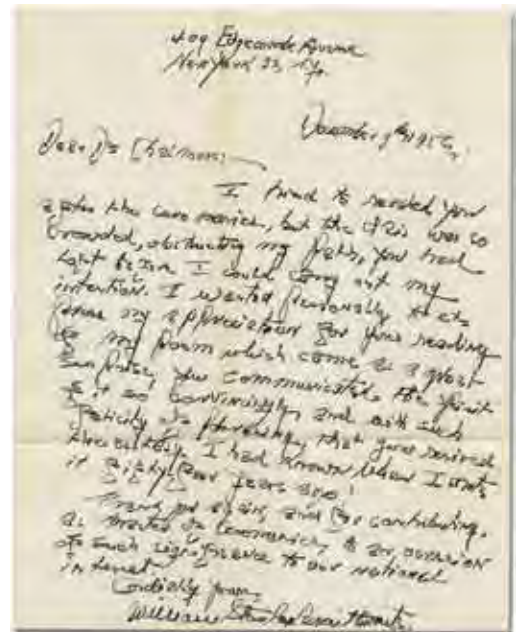 409 Edgecombe Avenue
New York 23, N.Y.
December
Dear Dr
I tried to you
after the ceremonies, but the was so
crowded, obstructing my path, you had
before I could carry out my
intention. I wanted personally to ex
my appreciation for your reading
of my poem which came as a great
surprise, you communicated the spirit
of it so convincingly and with such
felicity of phrasing that you
the I had known when I wrote
it fifty four years ago!
Thank you again and for contributing,
to the ceremonies to an occasion
of such significance to our national
interest
Cordially yours,
William Stanley Braithwaite